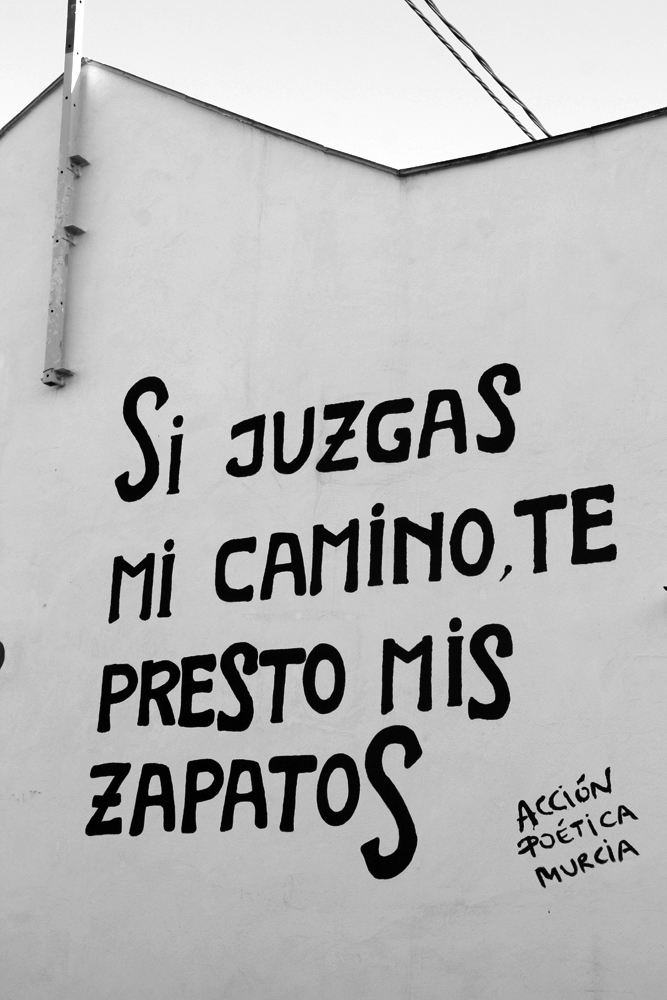 Si JUZGAS
Mi CAMiNO, TE
PRESTO MiS
ZAPATOS
ACCiÓN
POÉTiCA
MURCiA